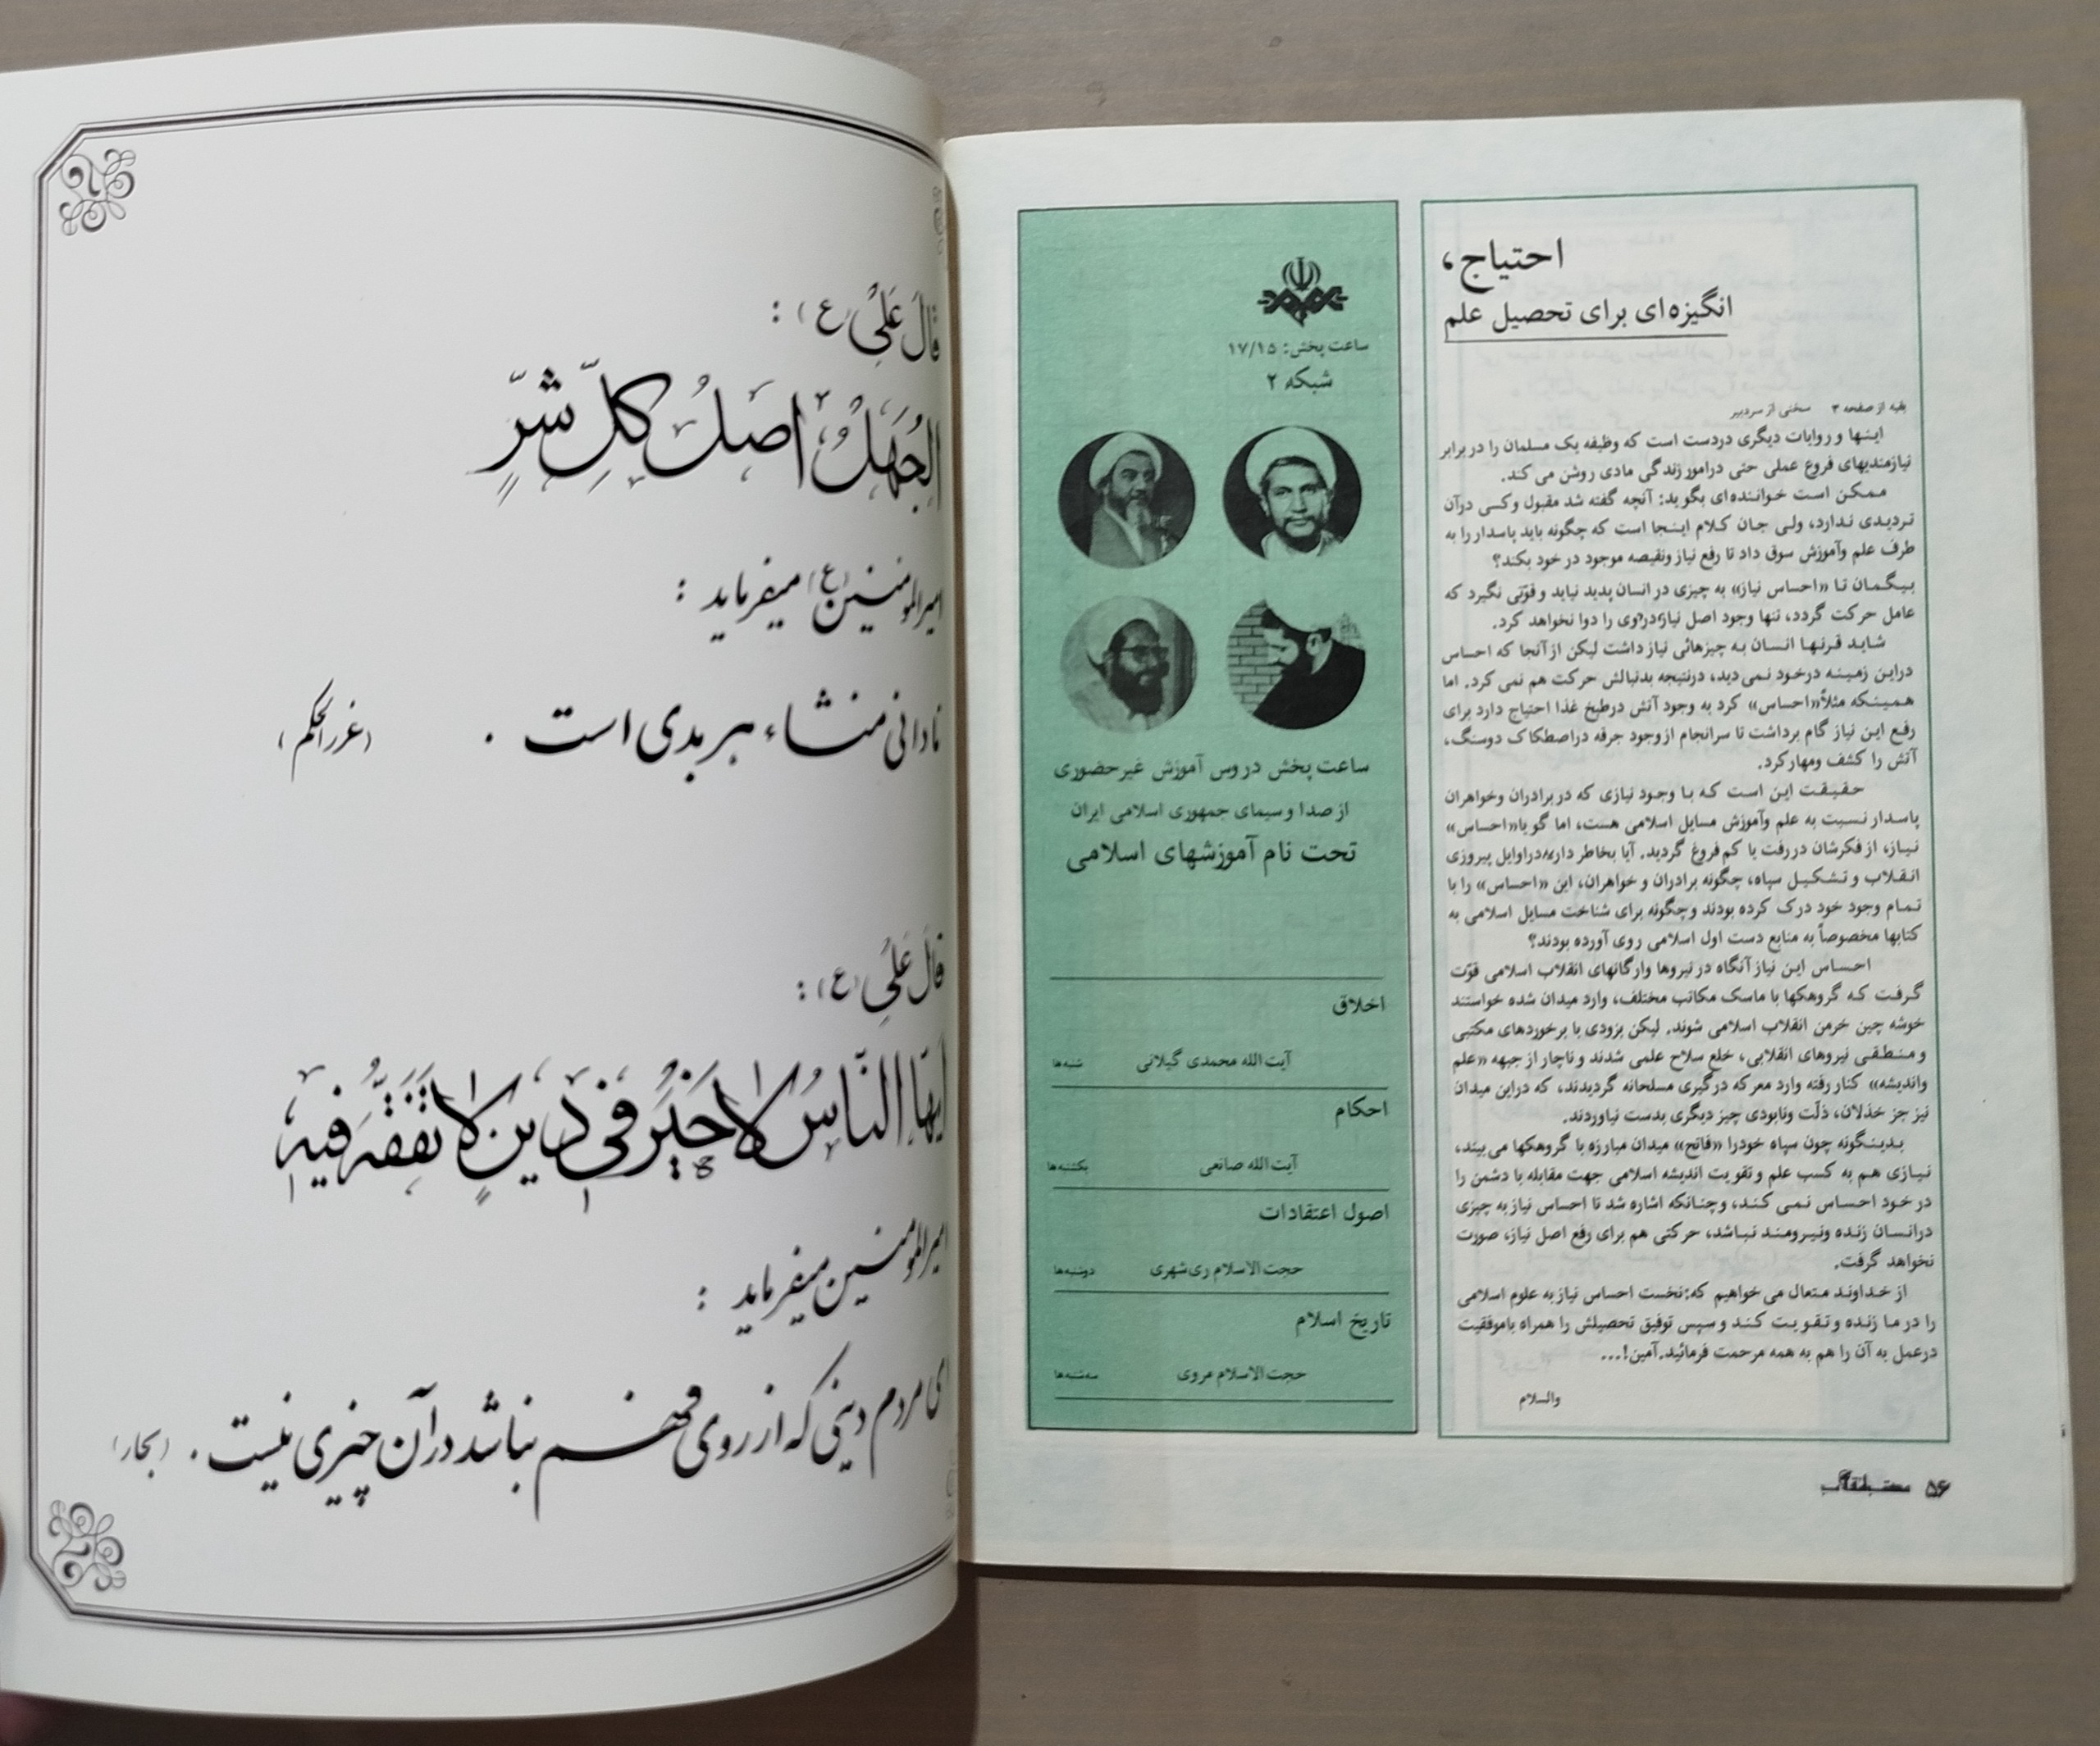 احتیاج،
انگیزه‌ای برای تحصیل علم
بقیه از صفحه ۳ سخنی از سردبیر
اینها و روایات دیگری دردست است که وظیفه یک مسلمان را در برابر
نیازمندیهای فروع عملی حتی درامور زندگی مادی روشن می کند.
ممکن است خواننده‌ای بگوید: آنچه گفته شد مقبول وکسی درآن
تردیدی ندارد، ولی جان کلام اینجا است که چگونه باید پاسدار را به
طرف علم وآموزش سوق داد تا رفع نیاز ونقیصه موجود در خود بکند؟
بیگمان تا «احساس نیاز» به چیزی در انسان پدید نیاید و قوّتی نگیرد که
عامل حرکت گردد، تنها وجود اصل نیاز،دردی را دوا نخواهد کرد.
شاید قرنها انسان به چیزهائی نیاز داشت لیکن ازآنجا که احساس
دراین زمینه درخود نمی دید، درنتیجه بدنبالش حرکت هم نمی کرد. اما
همینکه مثلاً«احساس» کرد به وجود آتش درطبخ غذا احتیاج دارد برای
رفع این نیاز گام برداشت تا سرانجام ازوجود جرقه دراصطکاک دوسنگ،
آتش را کشف ومهارکرد.
حقیقت این است که با وجود نیازی که در برادران وخواهران
پاسدار نسبت به علم وآموزش مسایل اسلامی هست، اما گو یا«احساس»
نیاز، از فکرشان در رفت یا کم فروغ گردید. آیا بخاطر دارید دراوایل پیروزی
انقلاب و تشکیل سپاه، چگونه برادران و خواهران، این «احساس» را با
تمام وجود خود درک کرده بودند وچگونه برای شناخت مسایل اسلامی به
کتابها مخصوصاً به منابع دست اول اسلامی روی آورده بودند؟
احساس این نیاز آنگاه در نیروها وارگانهای انقلاب اسلامی قوّت
گرفت که گروهکها با ماسک مکاتب مختلف، وارد میدان شده خواستند
خوشه چین خرمن انقلاب اسلامی شوند. لیکن بزودی با برخوردهای مکتبی
و منطقی نیروهای انقلابی، خلع سلاح علمی شدند وناچار از جبهه «علم
واندیشه» کنار رفته وارد معرکه درگیری مسلحانه گردیدند، که دراین میدان
نیز جز خذلان، ذلّت ونابودی چیز دیگری بدست نیاوردند.
بدینگونه چون سپاه خودرا «فاتح» میدان مبارزه با گروهکها می بیند،
نیازی هم به کسب علم و تقویت اندیشه اسلامی جهت مقابله با دشمن را
در خود احساس نمی کند، وچنانکه اشاره شد تا احساس نیاز به چیزی
درانسان زنده ونیرومند نباشد، حرکتی هم برای رفع اصل نیاز، صورت
نخواهد گرفت.
از خداوند متعال می خواهیم که:نخست احساس نیاز به علوم اسلامی
را در ما زنده و تقویت کند و سپس توفیق تحصیلش را همراه باموفقیت
درعمل به آن را هم به همه مرحمت فرمائید.آمین!...
والسلام
۵۶
ساعت پخش: ۱۷/۱۵
شبکه ۲
ساعت پخش دروس آموزش غیرحضوری
از صدا وسیمای جمهوری اسلامی ایران
تحت نام آموزشهای اسلامی
اخلاق
آیت الله محمدی گیلانی شنبه‌ها
احکام
آیت الله صانعی یکشنبه‌ها
اصول اعتقادات
حجت الاسلام ری‌شهری دوشنبه‌ها
تاریخ اسلام
حجت الاسلام مروی سه‌شنبه‌ها
قالَ عَلیٌّ (ع) :
اَلجَهلُ اَصلُ کُلِّ شَرٍّ
امیرالمومنین (ع) میفرماید :
نادانی منشاء هر بدی است . (غررالحکم)
قالَ عَلیٌّ (ع) :
اَیُّهَا النّاسُ لا خَیرَ فی دینٍ لا تَفَقُّهَ فیهِ
امیرالمومنین میفرماید :
ای مردم دینی که از روی فهم نباشد در آن خیری نیست . (بحار)